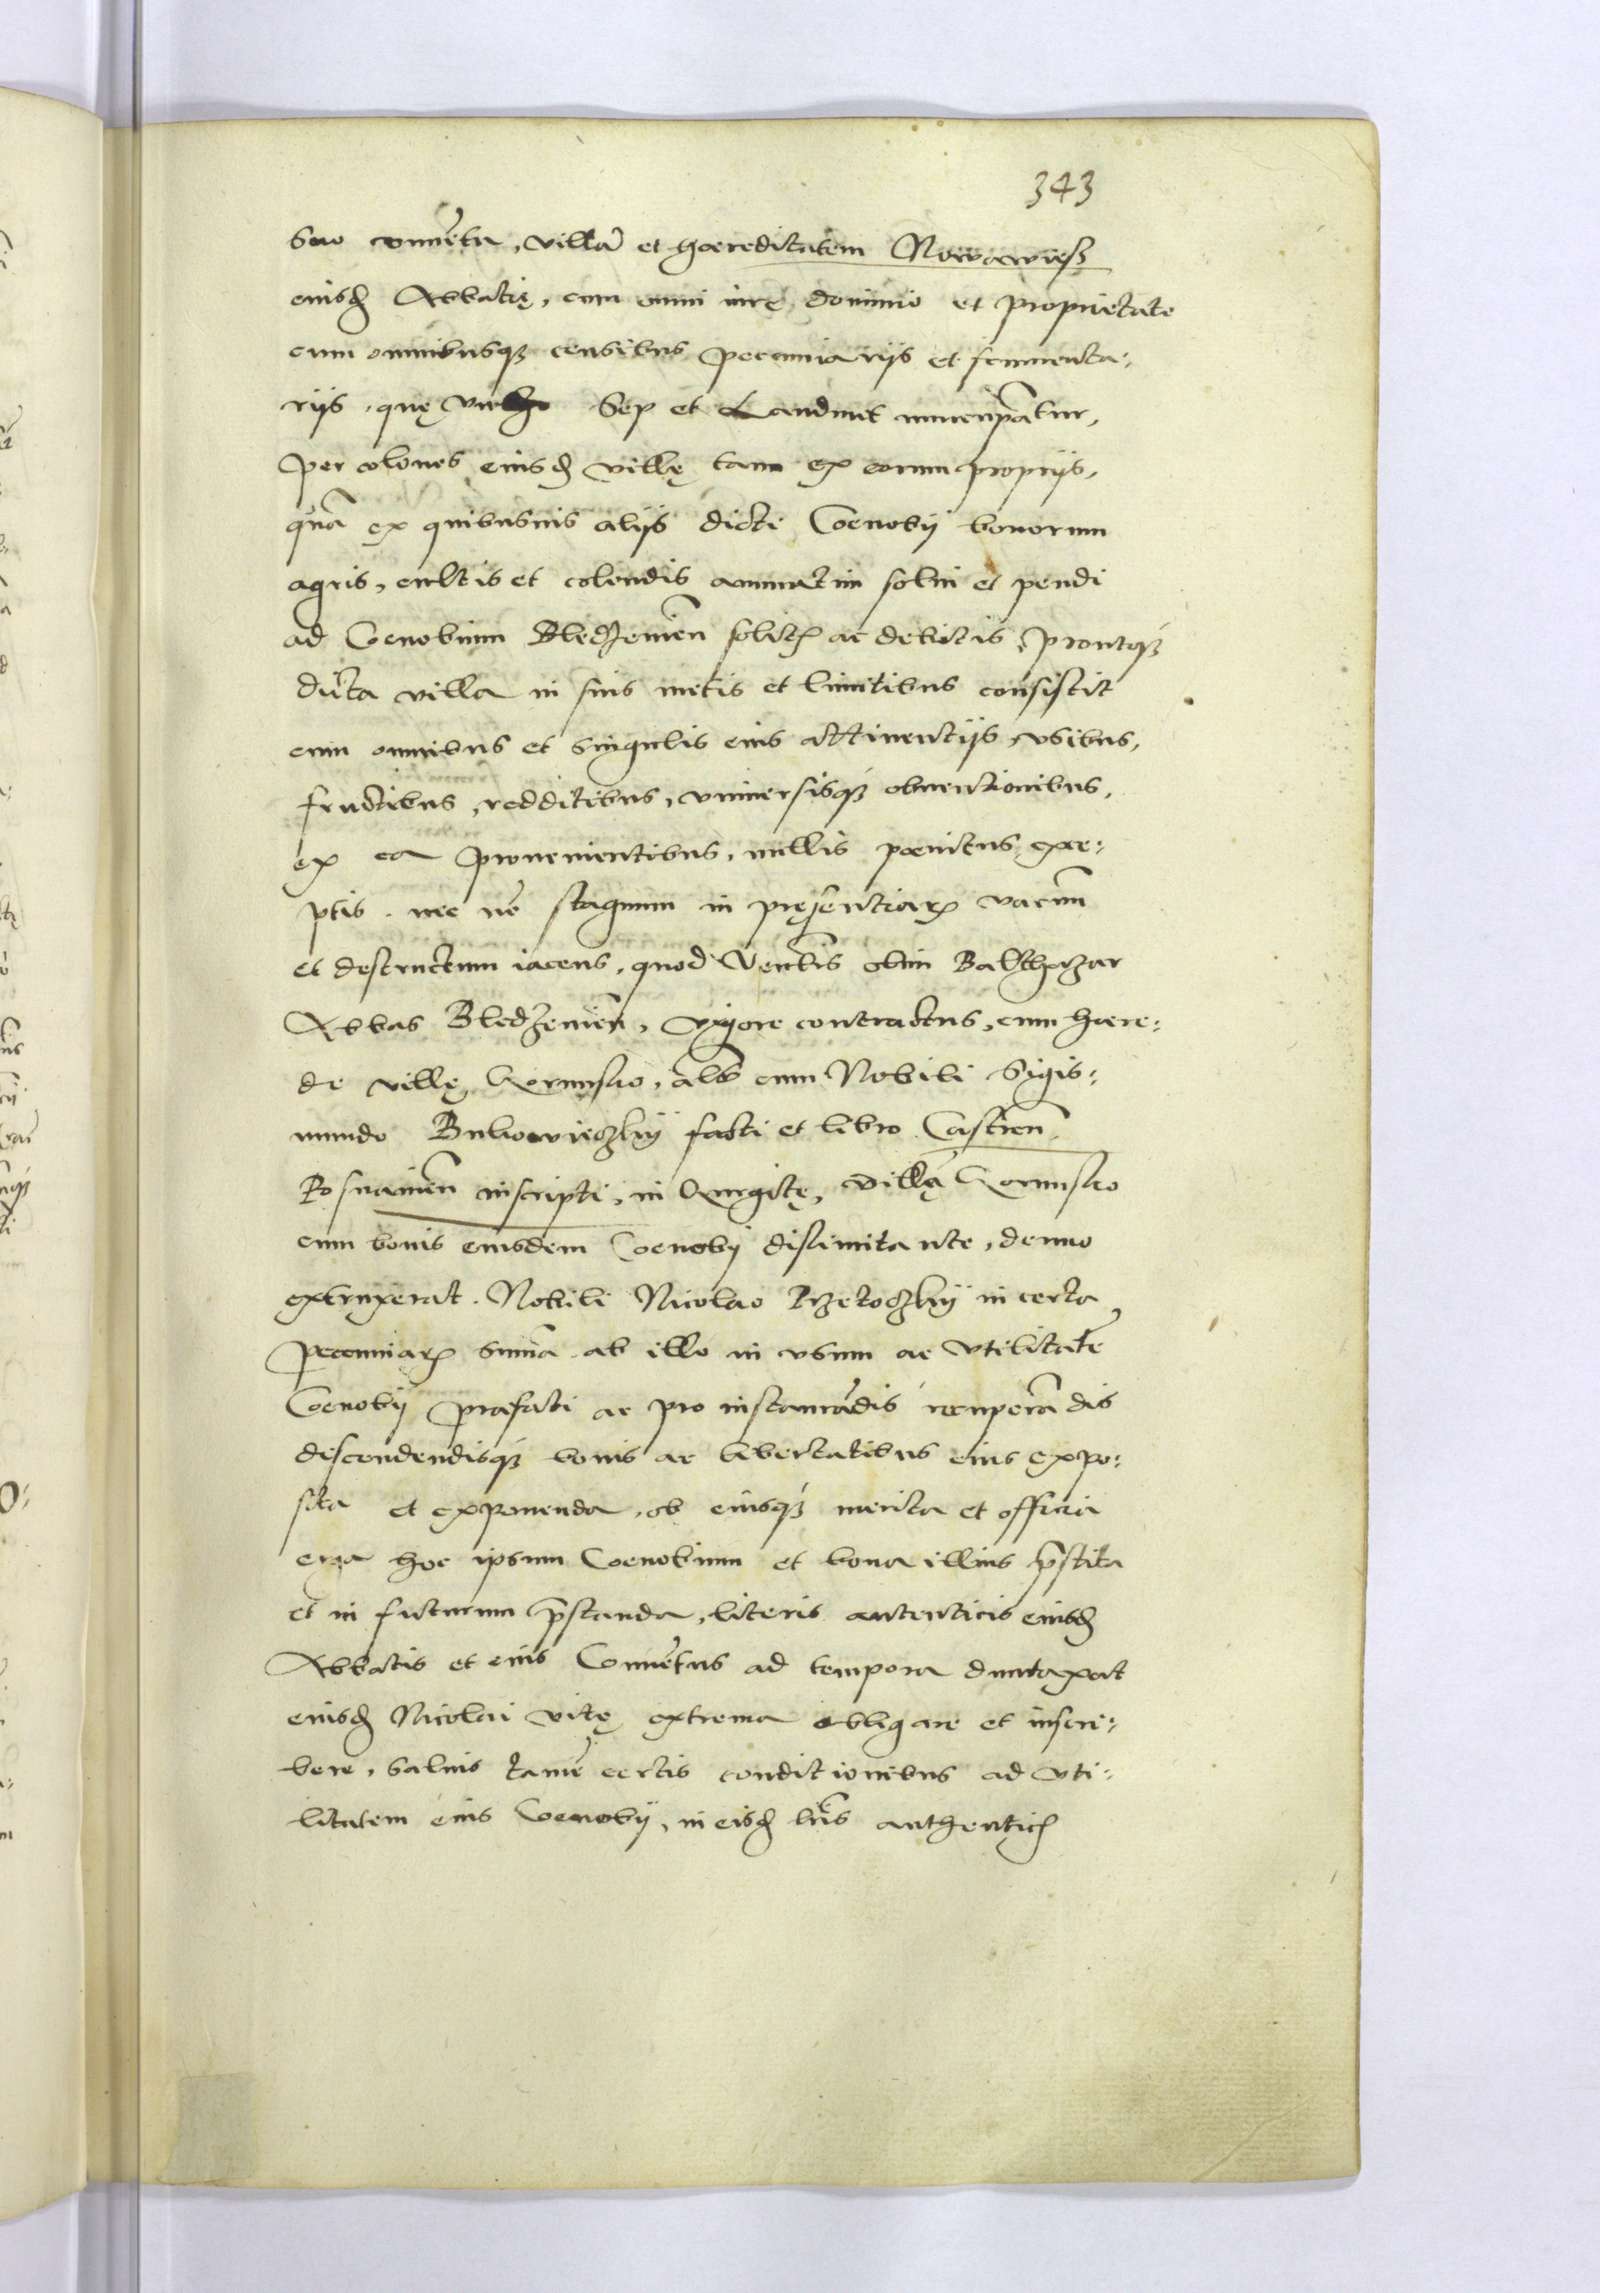 343
suo conuẽtu, villã et hæreditatem Nowawiesz
eiusđ Abbatię, cum omni iurę dominio et proprietate
cum omnibusq; censibus pecuniarijs et frumenta:
rijs, quę Sep et Landmit nuncupãtur,
per colonos eiusđ villę tam ex eorum proprijs,
quã ex quibusuis alijs dicti Coenobij bonorum
agris, cultis et colendis annuatim solui et pendi
ad Coenobium Bledzewieñ solitis ac debitis, proutq;
dicta villa in suis metis et limitibus consistit
cum omnibus et singulis eius attinentijs, vsibus,
fructibus, redditibus, vniuersisq; obuentionibus,
ex ea prouenientibus, nullis pœnitus exce:
ptis. nec nõ stagnum in pręsentiarum vacuum
et destructum iacens, quod Venerabilis olim Balthazar
Abbas Bledzewieñ, vigore contractus, cum hære:
de villę Gorunsko, als cum Nobili Sigis:
mundo Bukowieczkij facti et libro Castreñ
Posnanieñ inscripti, in gurgitę, villę Gorunsko
cum bonis eiusdem Coenobij dislimitante, denuo
extruxerat. Nobili Nicolao Rzetoczkij in certa
pecuniarum summa ab illo in vsum ac vtilitatẽ
Coenobij præfati ac pro instaurãdis recuperãdis
descendendisq; bonis ac libertatibus eius expo:
sita et exponenda, ob eiusq; merita et officia
erga hoc ipsum Coenobium et bona illius p̃stita
et in futurum p̃standa, literis autenticis eiusđ
Abbatis et eius Conuẽtus ad tempora duntaxat
eiusđ Nicolai vitę extrema obligare et inscri:
bere, saluis tamẽ certis conditionibus ad vti:
litatem eius Coenobij, in eisđ lr̃is authenticis